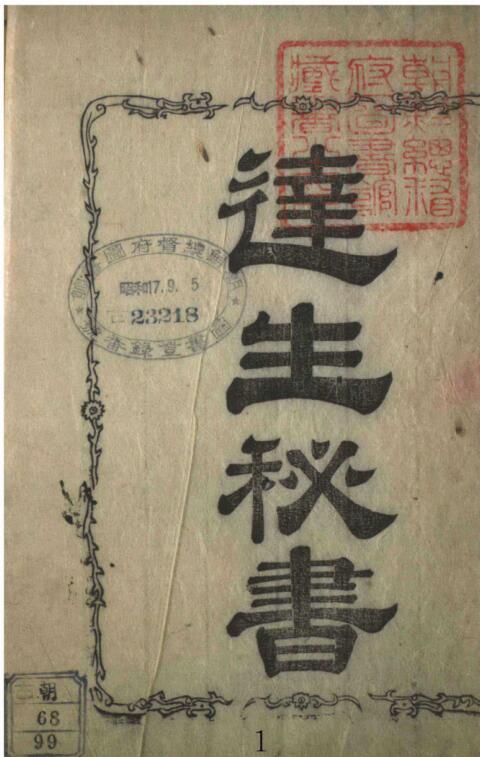 達生秘書
朝鮮總督
府圖書館
藏書之印
朝鮮總督府圖書館
昭和17.9.5
古23218
圖書登錄番號
古朝
68
99
1